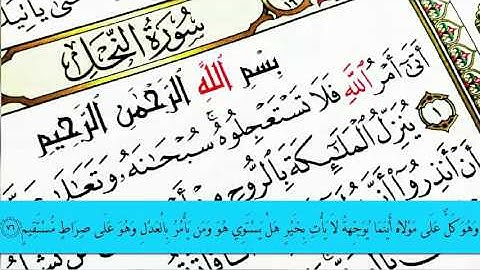 سُورَةُ النَّحْلِ
بِسْمِ اللَّهِ الرَّحْمَٰنِ الرَّحِيمِ
أَتَىٰ أَمْرُ اللَّهِ فَلَا تَسْتَعْجِلُوهُ سُبْحَانَهُ وَتَعَالَىٰ
١ يُنَزِّلُ الْمَلَٰٓئِكَةَ بِالرُّوحِ مِنْ
أَنْ أَنذِرُوٓا۟ أَنَّهُ
وَهُوَ كَلٌّ عَلَىٰ مَوْلَاهُ أَيْنَمَا يُوَجِّههُّ لَا يَأْتِ بِخَيْرٍ هَلْ يَسْتَوِي هُوَ وَمَن يَأْمُرُ بِالْعَدْلِ وَهُوَ عَلَىٰ صِرَاطٍ مُّسْتَقِيمٍ ٧٦